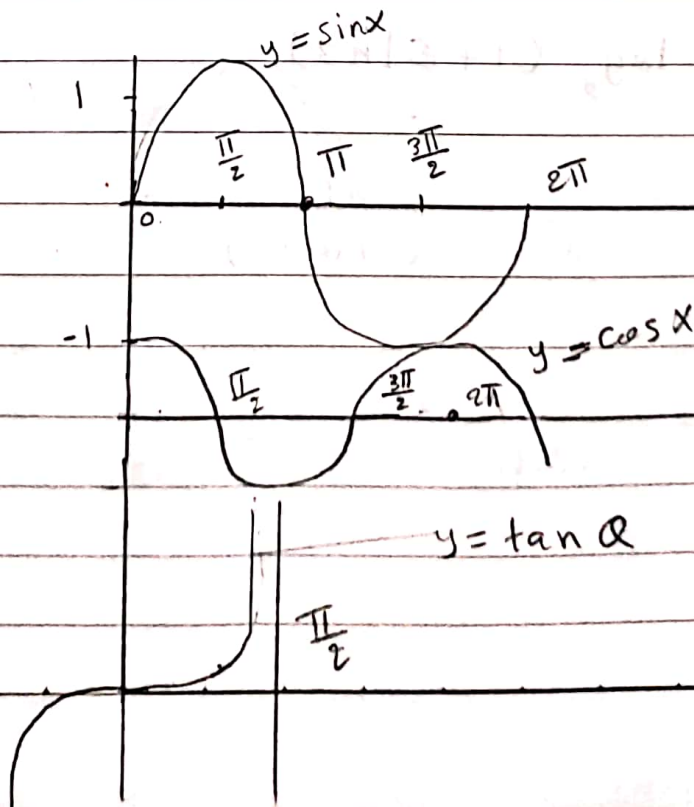 y = sinx
1
π/2 π 3π/2 2π
0
-1
y = cos x
π/2 3π/2 2π
y = tan Q
π/2